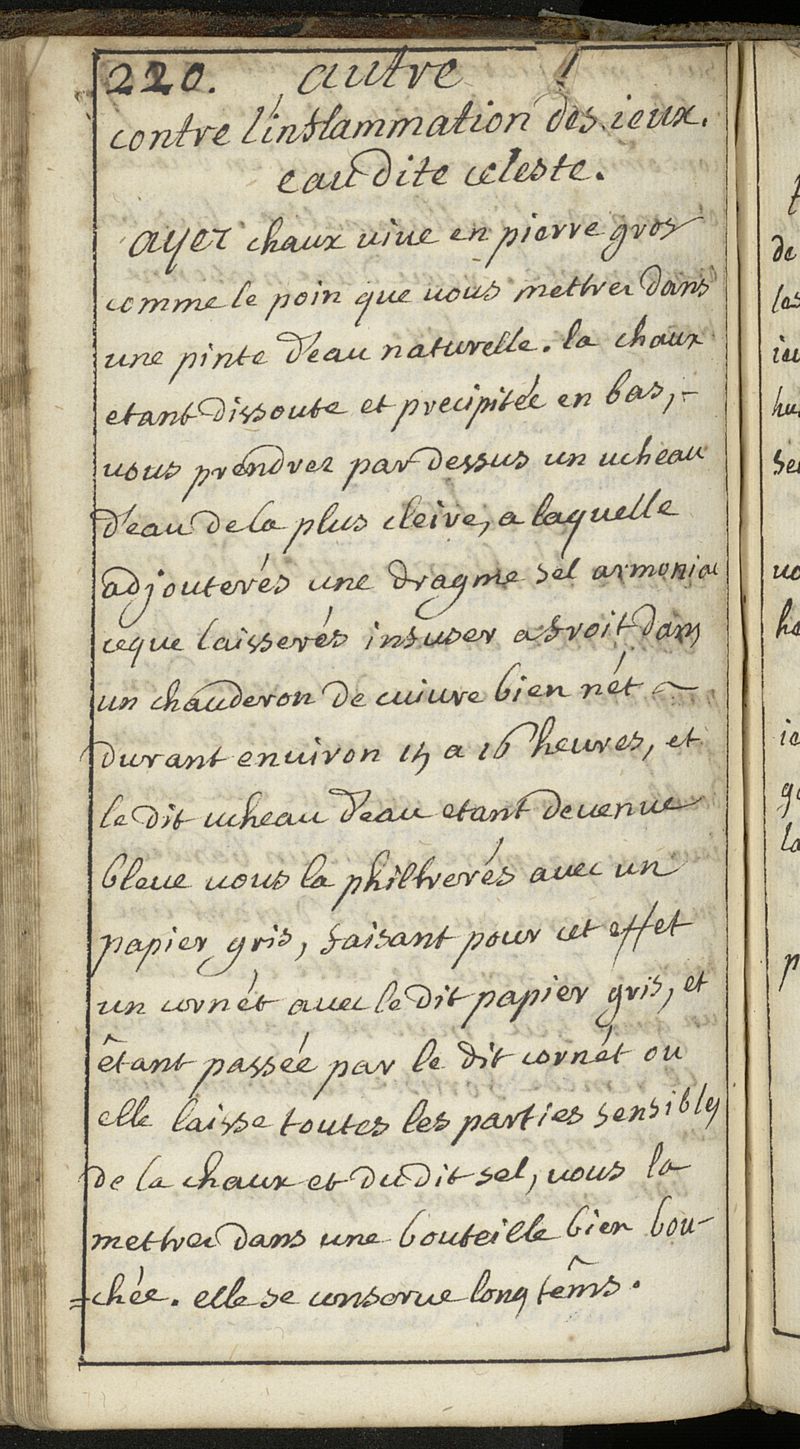 220. autre
contre l'inflammation des ieux.
eau dite celeste.
ayez chaux vive en pierre gros
comme le poin que vous mettrez dans
une pinte d'eau naturelle. la chaux
etant dissoute et precipitée en bas,
vous prendrez par dessus un ucheau
d'eau de la plus cleire, a laquelle
adjouterés une dragme sel armoniac
ceque laisserés infuser a froit dans
un chauderon de cuivre bien nét
durant environ 15 a 16 heures, et
le dit ucheau d'eau etant devenue
bleue vous la philtrerés avec un
papier gris, faisant pour cet effet
un cornét avec le dit papier gris, et
êtant passée par le dit cornét ou
elle laisse toutes les parties sensibles
de la chaux et du dit sel, vous la
mettrez dans une bouteille bien bou-
=chée. elle se conserve long têms.
de
les
ieu
hu
se
vo
he
ie
ge
la
p